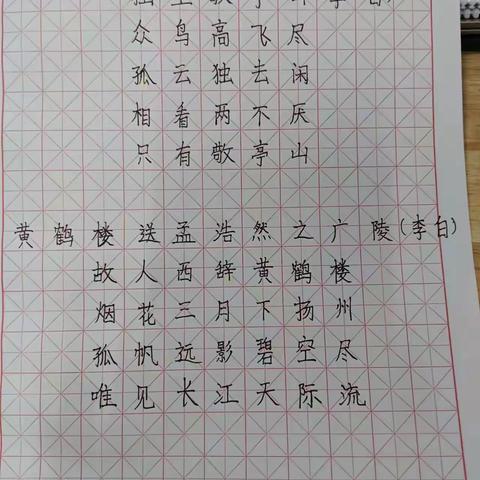 众鸟高飞尽
孤云独去闲
相看两不厌
只有敬亭山
黄鹤楼送孟浩然之广陵(李白)
故人西辞黄鹤楼
烟花三月下扬州
孤帆远影碧空尽
唯见长江天际流